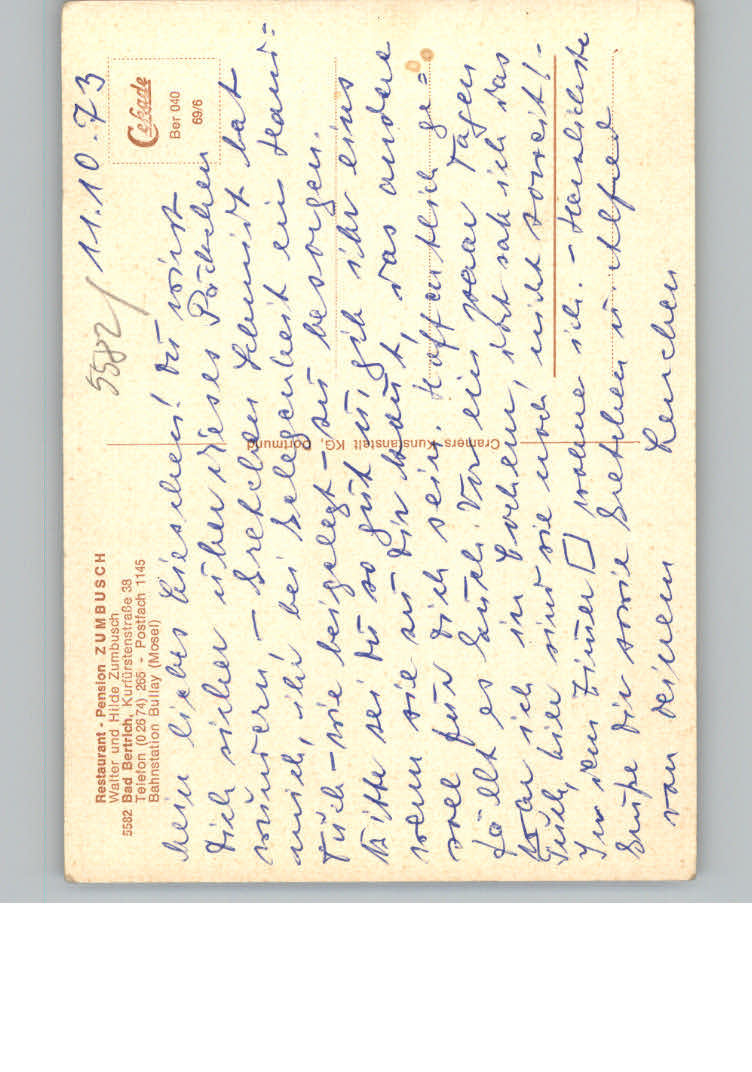 Restaurant - Pension ZUMBUSCH
Walter und Hilde Zumbusch
5582 Bad Bertrich, Kurfürstenstraße 38
Telefon (0 26 74) 265 - Postfach 1145
Bahnstation Bullay (Mosel)
Cramers Kunstanstalt KG, Dortmund
Cekade
Ber 040
69/6
5582/
11.10.73
Mein liebes Lieschen! Du wirst
Dich sicher über dieses Päckchen
wundern! - Gretchen Schmidt bat
mich, ihr bei Gelegenheit ein Hand-
tuch - wie beigelegt - zu besorgen.
Bitte sei Du so gut u. gib ihr eins
wenn sie zu Dir kommt, das andere
soll für Dich sein. Hoffentlich ge=
fällt es Euch. Vor ein paar Tagen
war ich in Cochem, dort sah ich das
Tuch, hier sind sie noch nicht soweit! -
In dem Zimmer □ wohne ich. - Herzlichste
Grüße Dir sowie Gretchen u. Alfred
von Deinem Lenchen